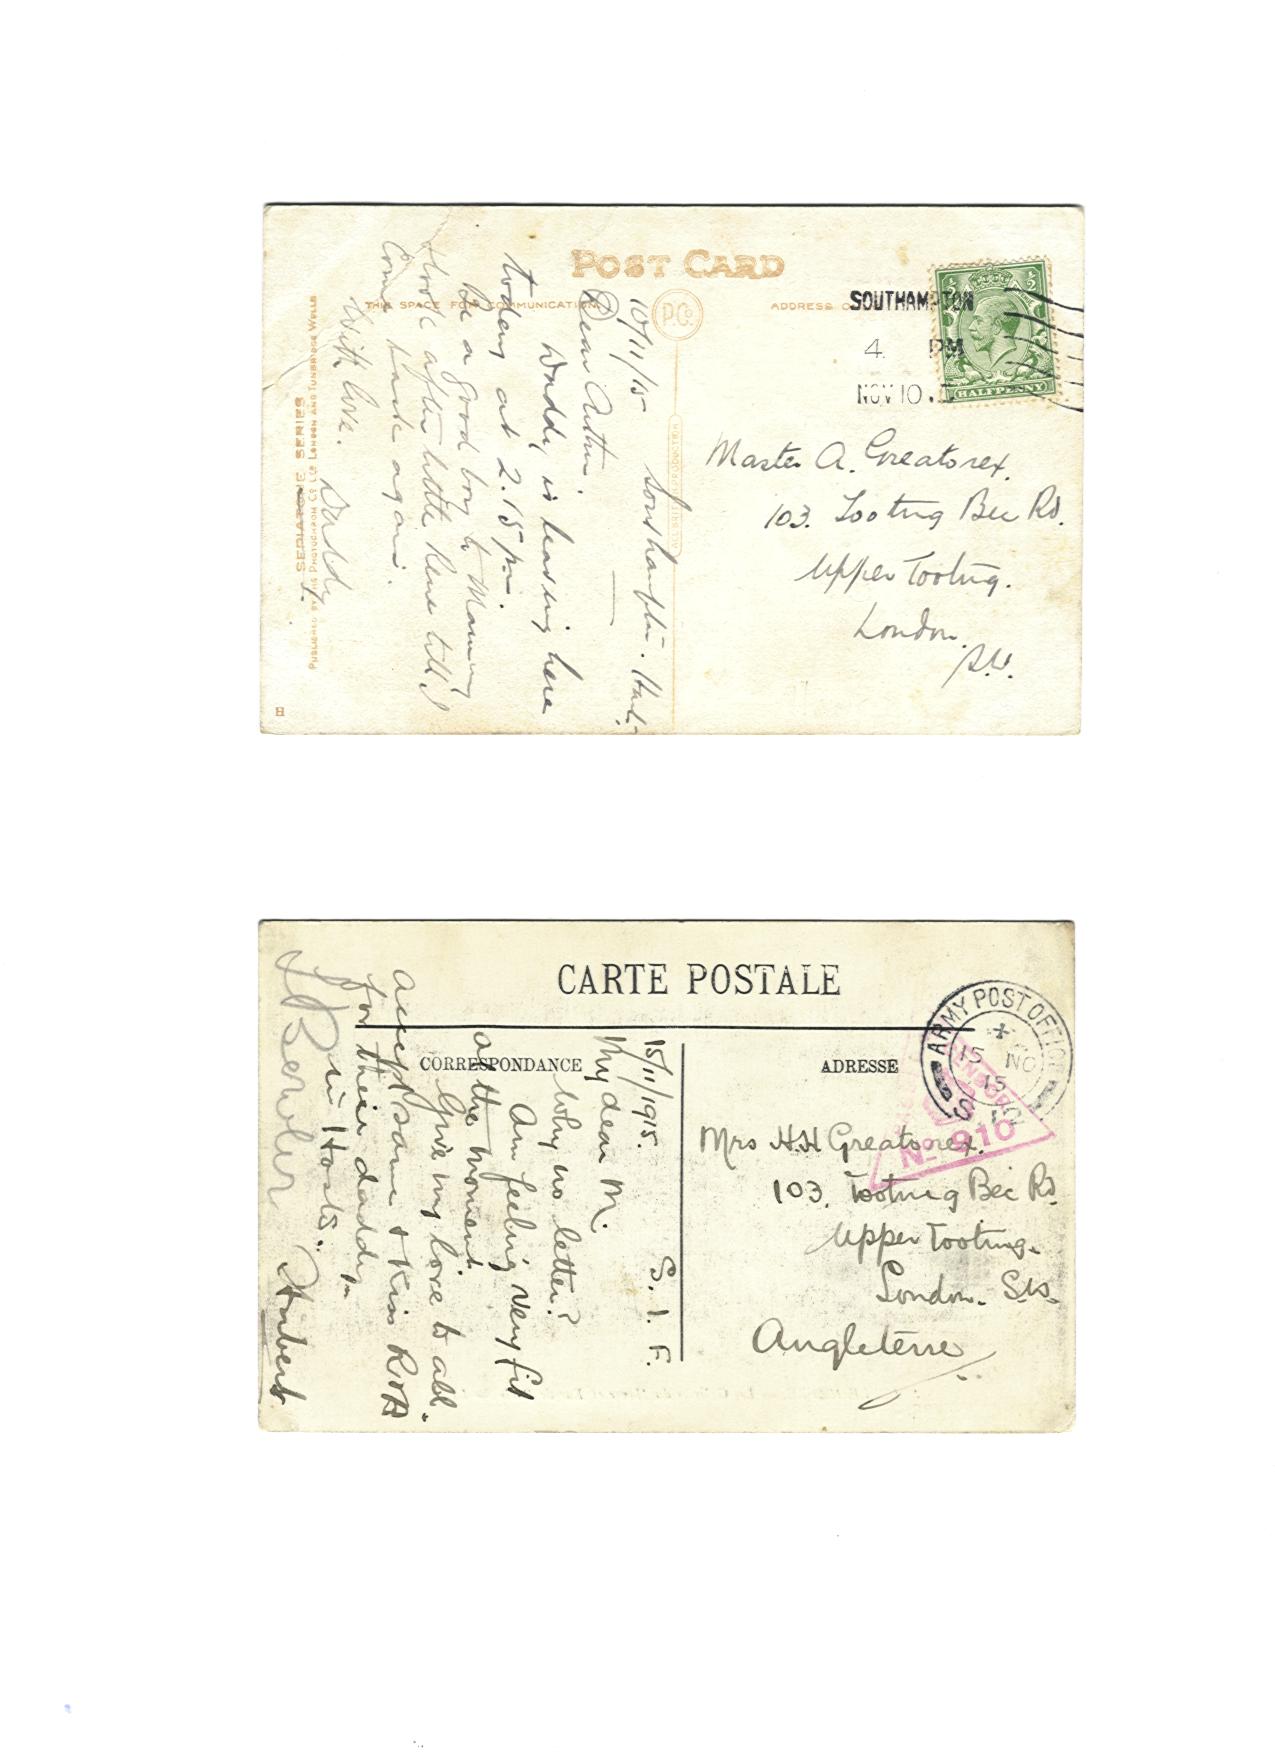 POST CARD
THIS SPACE FOR COMMUNICATION
ADDRESS
P.Co.
SOUTHAMPTON
4 PM
NOV 10 15
HALFPENNY
10/11/15 Southampton.
Dear Arthur.
Daddy is leaving here
today at 2.15 pm.
be a good boy to Mammy
look after little Rene till I
come back again.
With love. Daddy
Master A. Greatorex.
103. Tooting Bec Rd.
Upper Tooting.
London.
S.W.
SEPIATONE SERIES
PUBLISHED BY THE PHOTOCHROM CO LTD LONDON AND TUNBRIDGE WELLS
H
CARTE POSTALE
CORRESPONDANCE
ADRESSE
ARMY POST OFFICE
15 NO
15
S 12
No 910
15/11/1915. S. I. F.
My dear M.
Why no letter?
Am feeling very fit
at the moment.
Give my love to all.
accept same & kiss R & A
for their daddy
in Herbert
Mrs H.H Greatorex.
103, Tooting Bec Rd.
Upper Tooting.
London. SW.
Angleterre